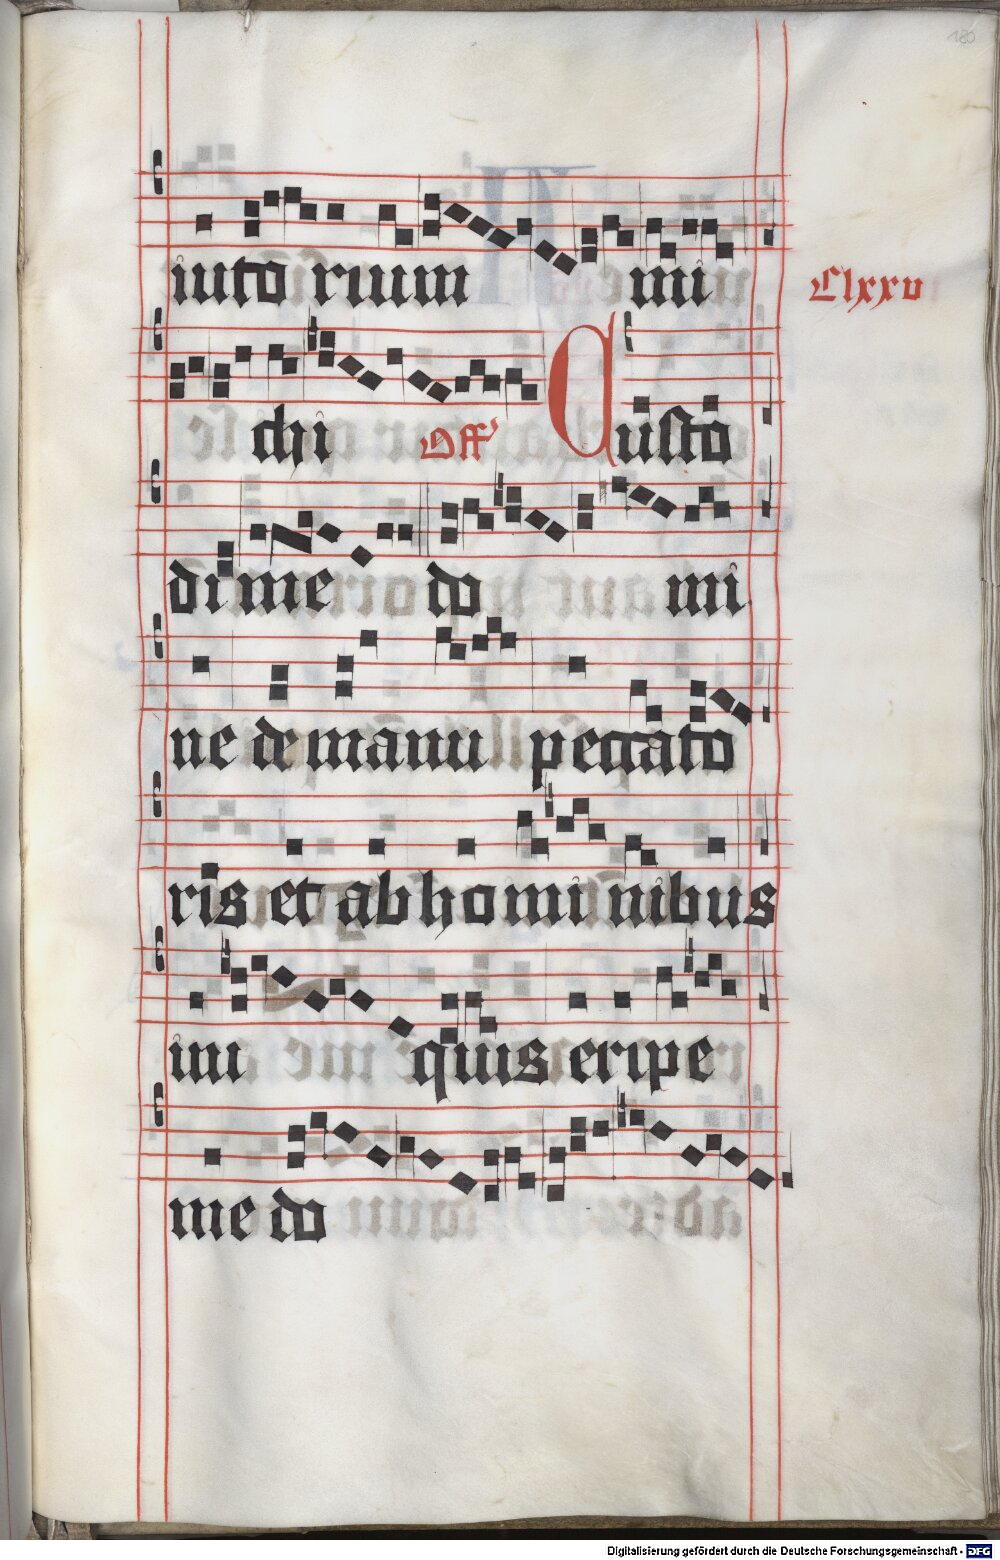 180
iuto rium mi
Clxxv
chi Off Custo
di me do mi
ne de manu peccato
ris et ab homi nibus
ini quis eripe
me do
Digitalisierung gefördert durch die Deutsche Forschungsgemeinschaft - DFG